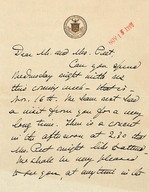 NOV 18 1915
Dear Mr. and Mrs. Peet
Can you spend
Wednesday night with us
this coming week — that is,
Nov. 16th. We have not had
a visit from you for a very
long time. There is a concert
in the afternoon at 2.30 that
Mrs. Peet might like to attend.
We shall be very pleased
to see you, at any time in the